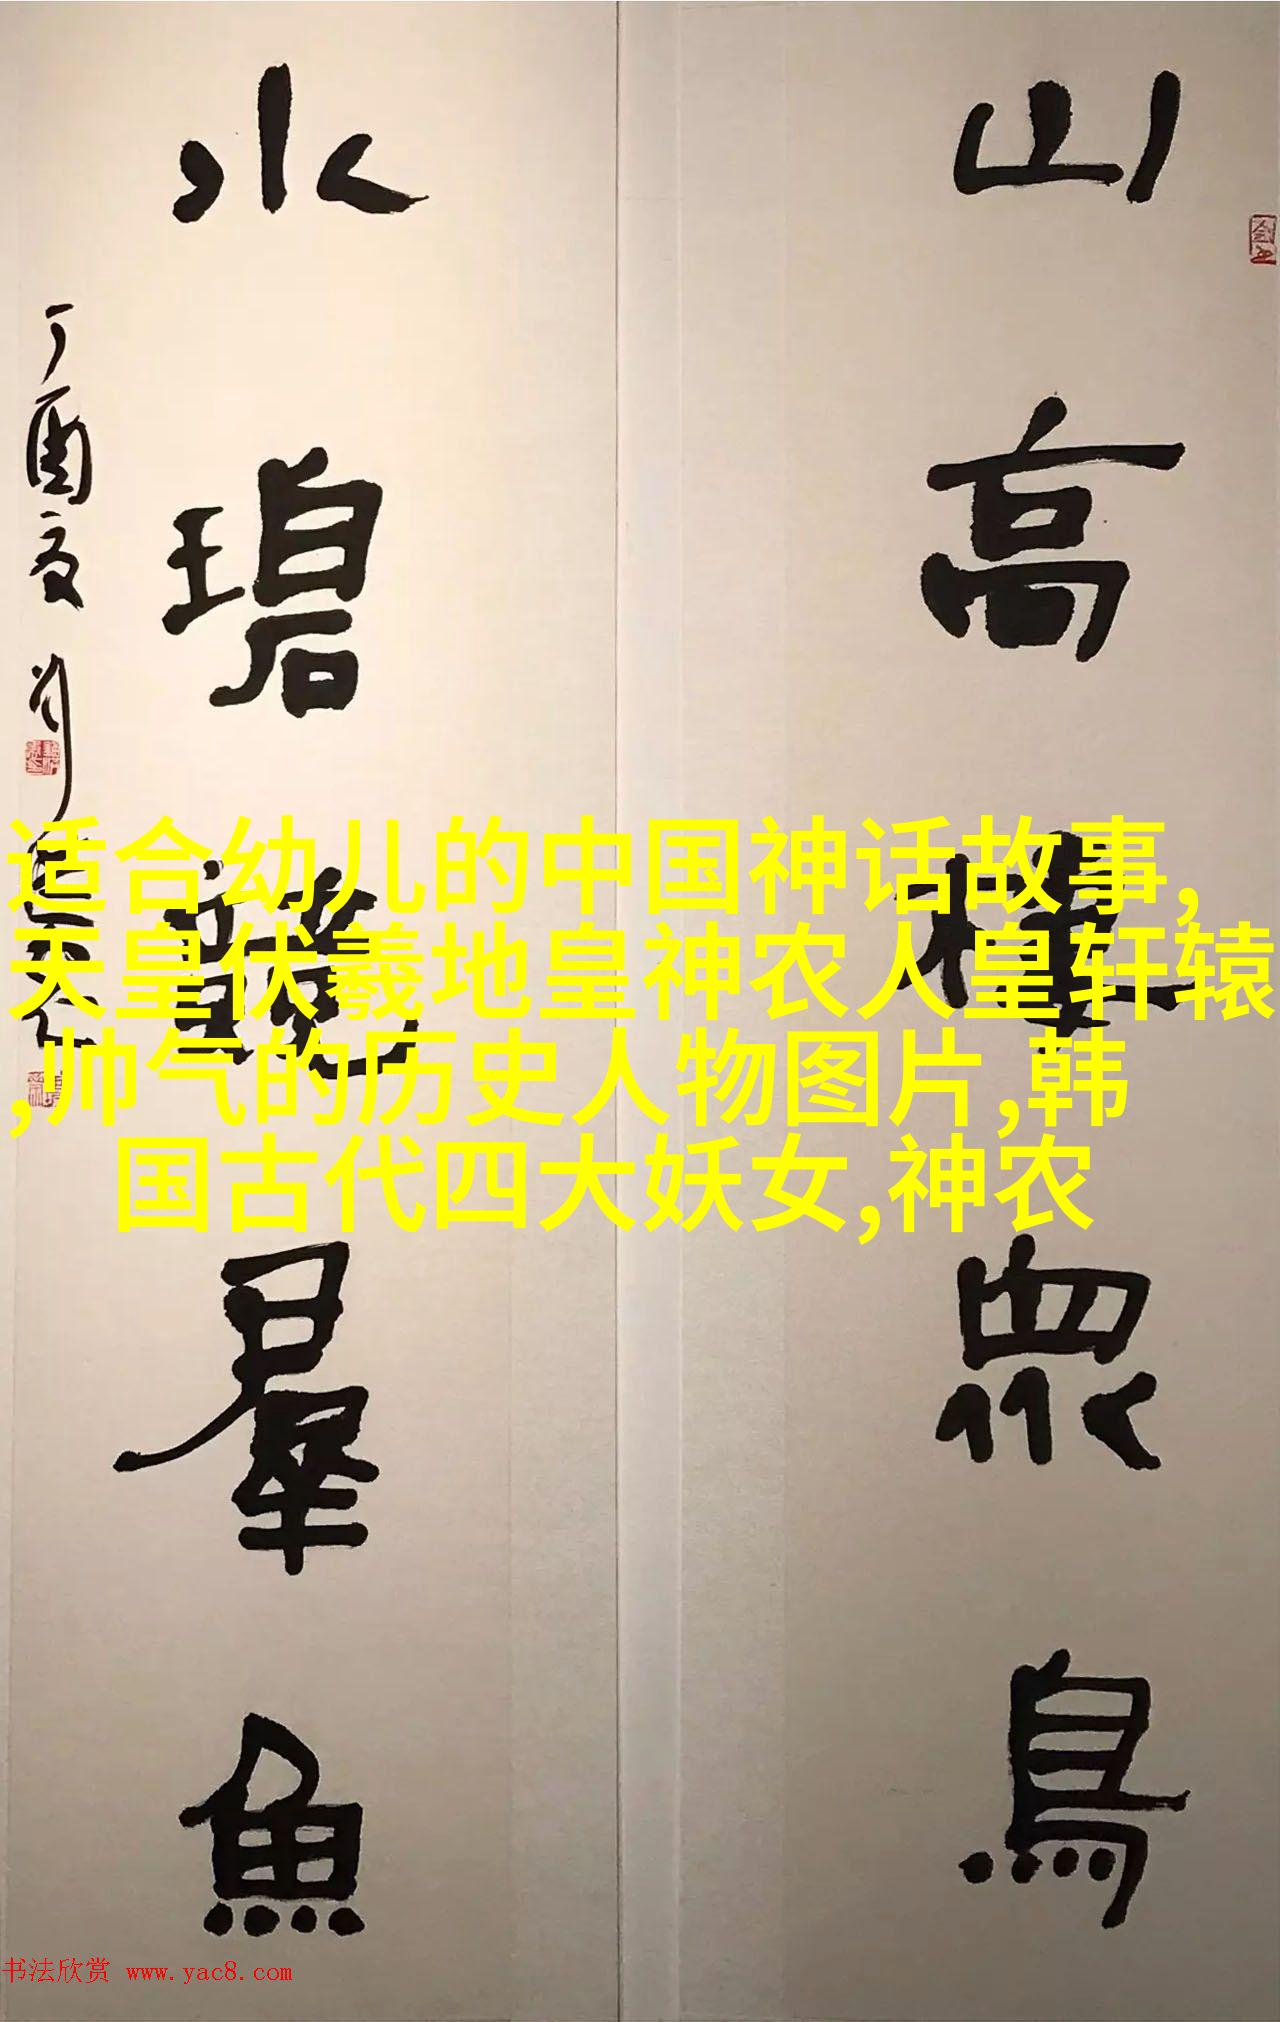 山高樓眾鳥
水碧龍羣魚
丁酉夏
适合幼儿的中国神话故事,
天皇伏羲地皇神农人皇轩辕
,帅气的历史人物图片,韩
国古代四大妖女,神农
书法欣赏 www.yac8.com